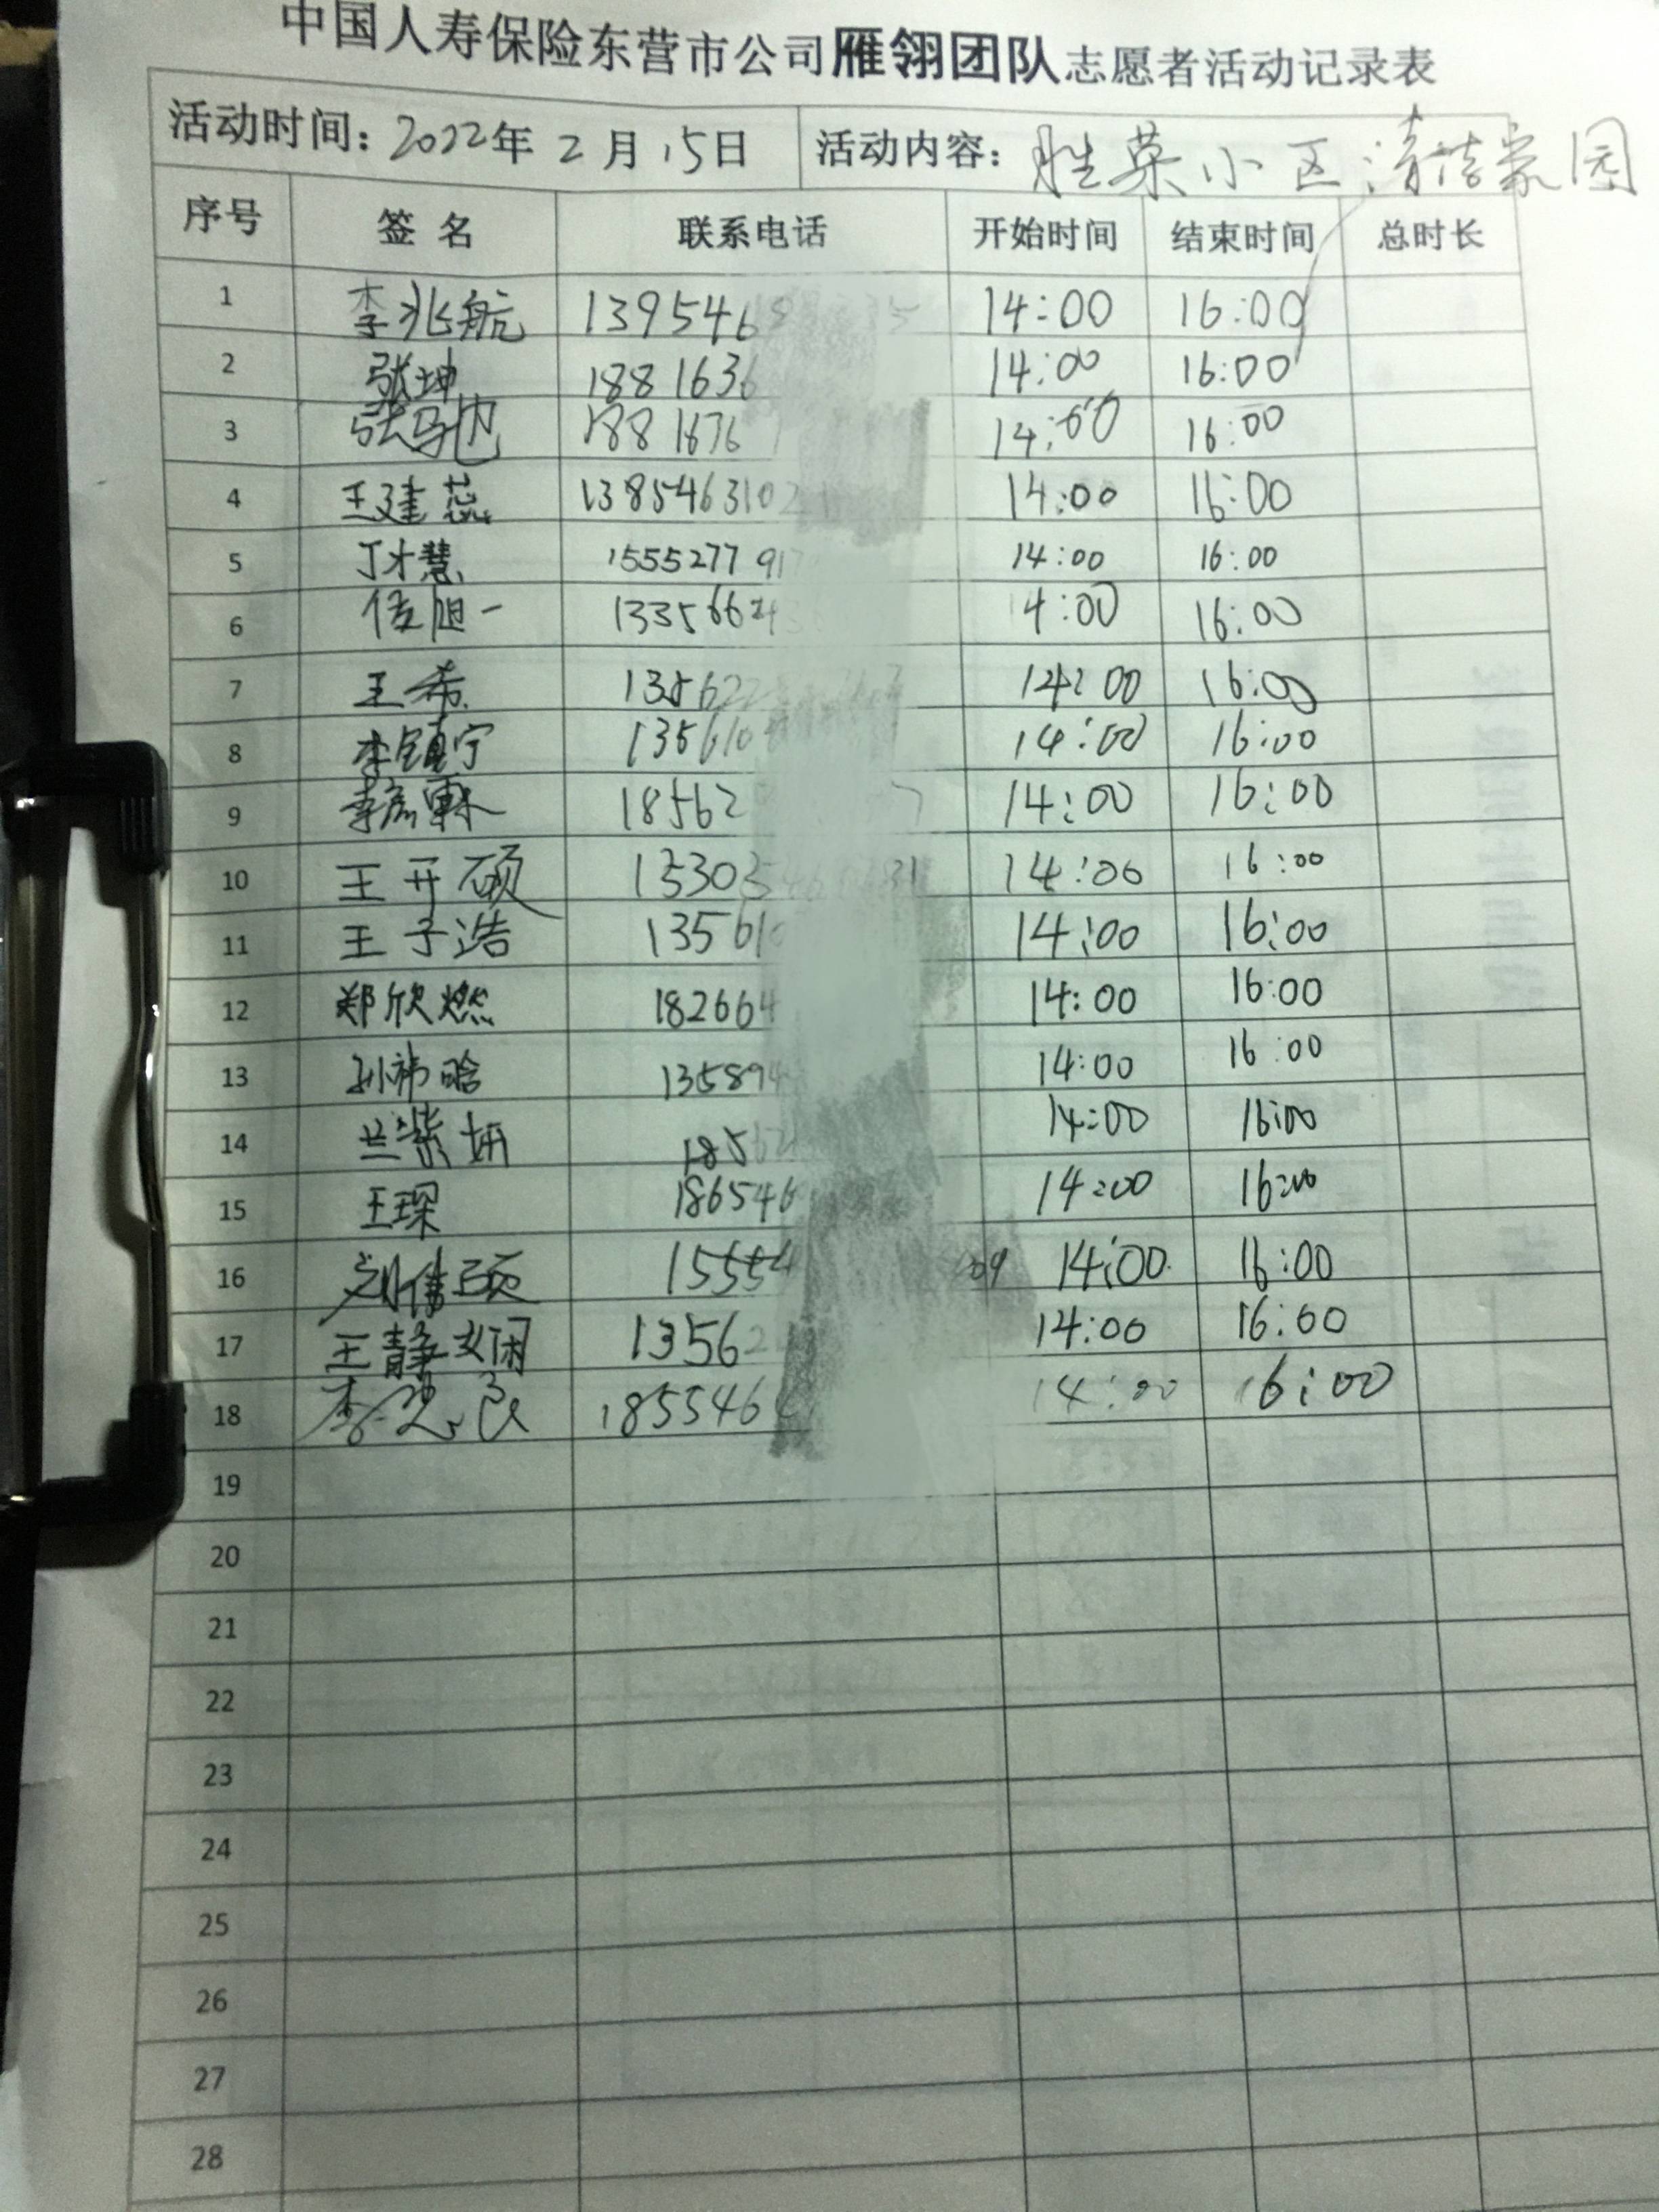 中国人寿保险东营市公司雁翎团队志愿者活动记录表
活动时间：2022年 2 月 15日 活动内容：胜荣小区清洁家园
序号 签 名 联系电话 开始时间 结束时间 总时长
1 李兆航 139546 14:00 16:00
2 张坤 1881636 14:00 16:00
3 188 1876 14:00 16:00
4 王建蕊 1385463102 14:00 16:00
5 丁才慧 1555277 917 14:00 16:00
6 旭一 13356624 14:00 16:00
7 王希 135622 14:00 16:00
8 李镇宁 135610 14:00 16:00
9 李 18562 7 14:00 16:00
10 王开硕 15303 31 14:00 16:00
11 王子浩 135610 14:00 16:00
12 郑欣燃 182664 14:00 16:00
13 孙祎晗 135894 14:00 16:00
14 兰紫妍 18562 14:00 16:00
15 王琛 186546 14:00 16:00
16 刘倩硕 15554 09 14:00 16:00
17 王静娴 13562 14:00 16:00
18 李 良 1855464 14:00 16:00
19
20
21
22
23
24
25
26
27
28